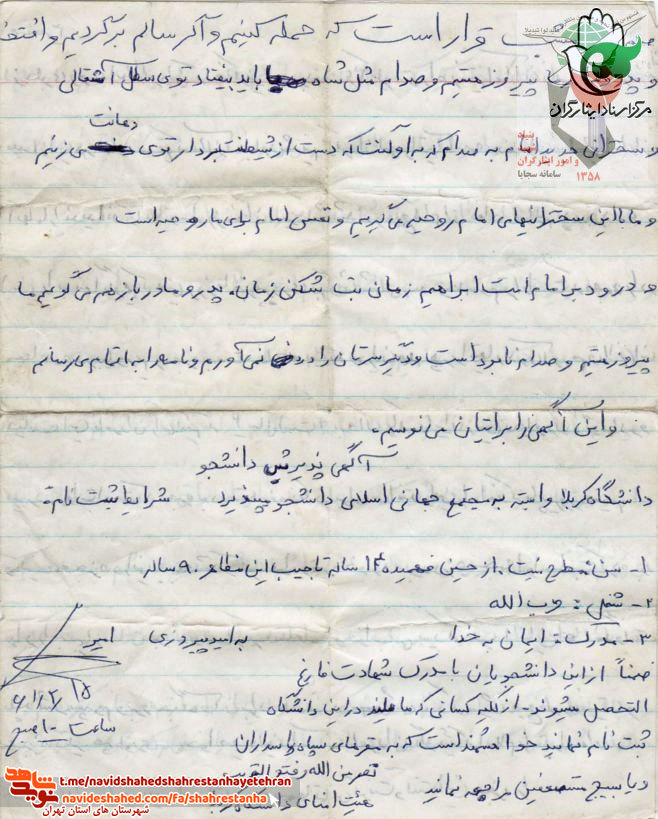 قرار است که حمله کنیم و اگر سالم برگردیم و
پیروز هستیم و صدام مثل شاه باید بیفتد توی سطل آشغالی
به صدام که به او گفت که دست از شیطنت بردار توی دهانت می زنیم
و ما با این سخنرانیهای امام روحیه می گیریم و نفس امام برای ما روحیه است
و درود بر امام امت ابراهیم زمان بت شکن زمان. پدر و مادر باز هم می گویم ما
پیروز هستیم و صدام نابود است و نامه را به اتمام می رسانم
و این آگهی را برایتان می نویسم.
آگهی پذیرش دانشجو
دانشگاه کربلا وابسته به مجتمع جهانی اسلامی دانشجو میپذیرد شرایط ثبت نام:
۱- سن مطرح نیست. از حسین فهمیده ۱۳ ساله تا حبیب ابن مظاهر ۹۰ ساله
۲- شغل: حزب الله
۳- مدرک: ایمان به خدا
به امید پیروزی امیر
ضمناً از این دانشجویان با مدرک شهادت فارغ
التحصیل میشوند. از کلیه کسانی که مایلند در این دانشگاه
ثبت نام نمایند خواهشمند است که به مقرهای سپاه پاسداران
و یا بسیج مستضعفین مراجعه نمایند
نصر من الله و فتح القریب
هیئت امنای دانشگاه کربلا
ساعت ۱۰ صبح
مرکز اسناد ایثارگران
بنیاد
و امور ایثارگران
۱۳۵۸
سامانه سجایا
نوید شاهد
t.me/navidshahedshahrestanhayetehran
navideshahed.com/fa/shahrestanha
شهرستان های استان تهران